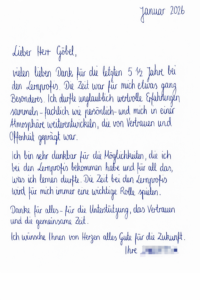 Januar 2026
Lieber Herr Göbel,
vielen lieben Dank für die letzten 5 ½ Jahre bei
den Lernprofis. Die Zeit war für mich etwas ganz
Besonderes. Ich durfte unglaublich wertvolle Erfahrungen
sammeln - fachlich wie persönlich - und mich in einer
Atmosphäre weiterentwickeln, die von Vertrauen und
Offenheit geprägt war.
Ich bin sehr dankbar für die Möglichkeiten, die ich
bei den Lernprofis bekommen habe und für all das,
was ich lernen durfte. Die Zeit bei den Lernprofis
wird für mich immer eine wichtige Rolle spielen.
Danke für alles - für die Unterstützung, das Vertrauen
und die gemeinsame Zeit.
Ich wünsche Ihnen von Herzen alles Gute für die Zukunft.
Ihre